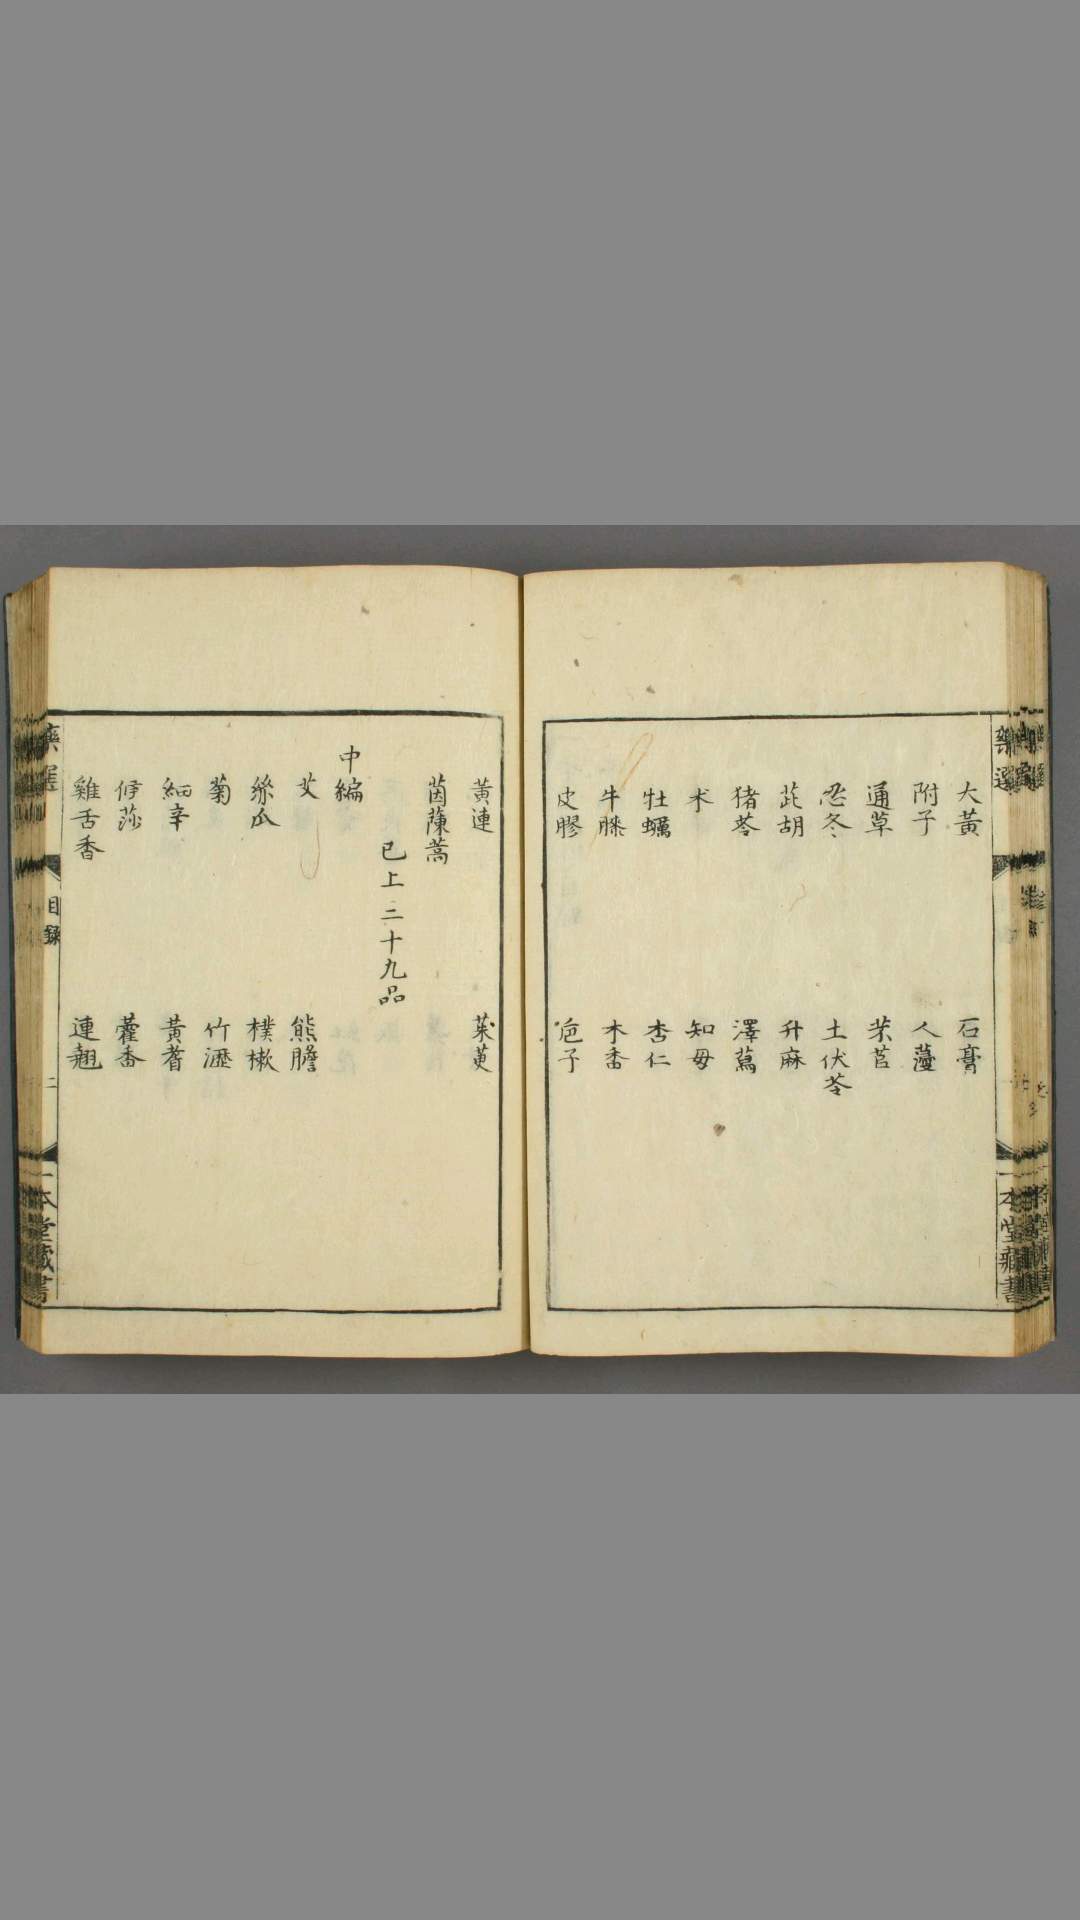 大黃 石膏
附子 人薓
通草 芣苢
忍冬 土伏苓
茈胡 升麻
猪苓 澤蕮
朮 知毋
牡蠣 杏仁
牛膝 木香
皮膠 巵子
黃連 茱萸
茵蔯蒿
已上三十九品
中編
艾 熊膽
絲瓜 樸樕
菊 竹瀝
細辛 黃耆
侾莎 藿香
雞舌香 連翹
藥選
目錄
二
一本堂藏書
藥選
一本堂藏書